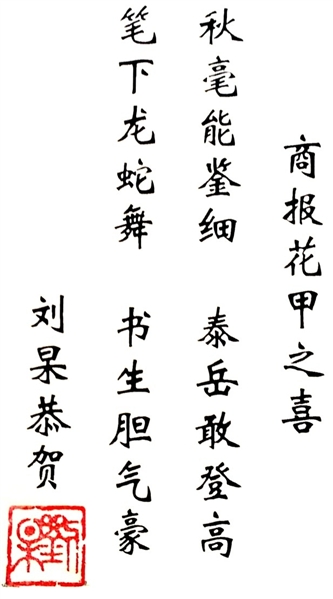 商报花甲之喜
秋毫能鉴细 泰岳敢登高
笔下龙蛇舞 书生胆气豪
刘杲恭贺
刘杲